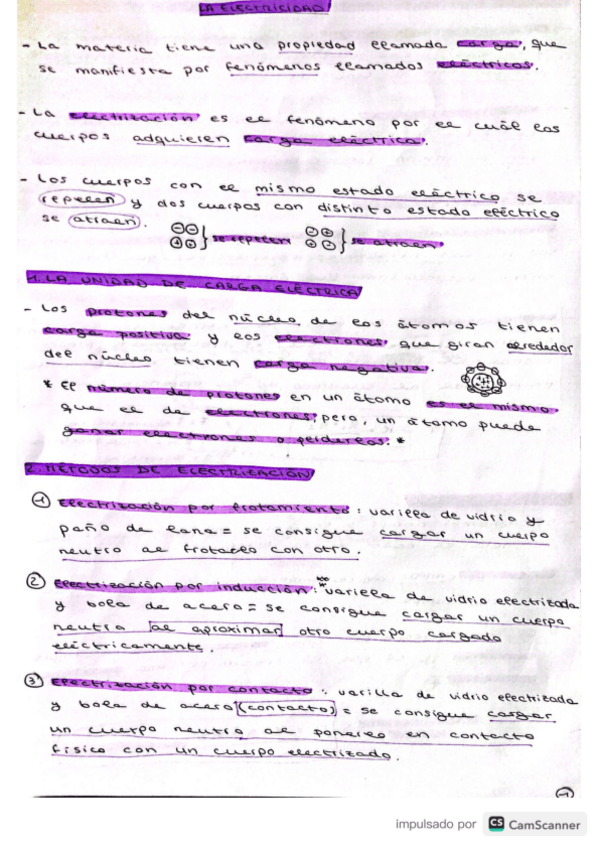 LA ELECTRICIDAD
- La materia tiene una propiedad llamada carga, que
se manifiesta por fenómenos llamados eléctricos.
- La electrización es el fenómeno por el cuál los
cuerpos adquieren carga eléctrica.
- Los cuerpos con el mismo estado eléctrico se
repelen y dos cuerpos con distinto estado eléctrico
se atraen.
- - + + } se repelen - + + - } se atraen
1. LA UNIDAD DE CARGA ELÉCTRICA
- Los protones del núcleo de los átomos tienen
carga positiva y los electrones, que giran alrededor
del núcleo tienen carga negativa.
* El número de protones en un átomo es el mismo
que el de electrones; pero, un átomo puede
ganar electrones o perderlos. *
2. MÉTODOS DE ELECTRIZACIÓN
1 Electrización por frotamiento: varilla de vidrio y
paño de lana = se consigue cargar un cuerpo
neutro al frotarlo con otro.
2 Electrización por inducción: varilla de vidrio electrizada
y bola de acero = se consigue cargar un cuerpo
neutro al aproximar otro cuerpo cargado
eléctricamente.
3 Electrización por contacto: varilla de vidrio electrizada
y bola de acero (contacto) = se consigue cargar
un cuerpo neutro al ponerlo en contacto
físico con un cuerpo electrizado.
1
impulsado por CS CamScanner